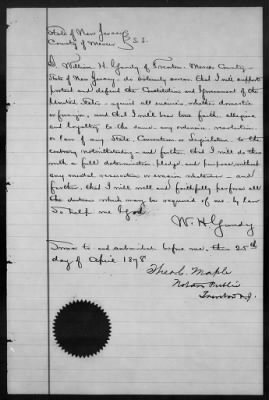 State of New Jersey
County of Mercer } S.S.
I, William H. Grundy of Trenton, Mercer County
State of New Jersey, do solemnly swear that I will support
protect and defend the Constitution and Government of the
United States against all enemies whether domestic
or foreign, and that I will bear true faith, allegiance
and loyalty to the same, any ordinance, resolution
or law of any State Convention or Legislature to the
contrary notwithstanding - and further, that I will do this
with a full determination, pledge and purpose, without
any mental reservation or evasion whatsoever - and
further, that I will well and faithfully perform all
the duties which may be required of me by law
So help me God
W. H. Grundy
Sworn to and subscribed before me, this 25th
day of April 1878
Theo. C. Maple
Notary Public
Trenton N.J.